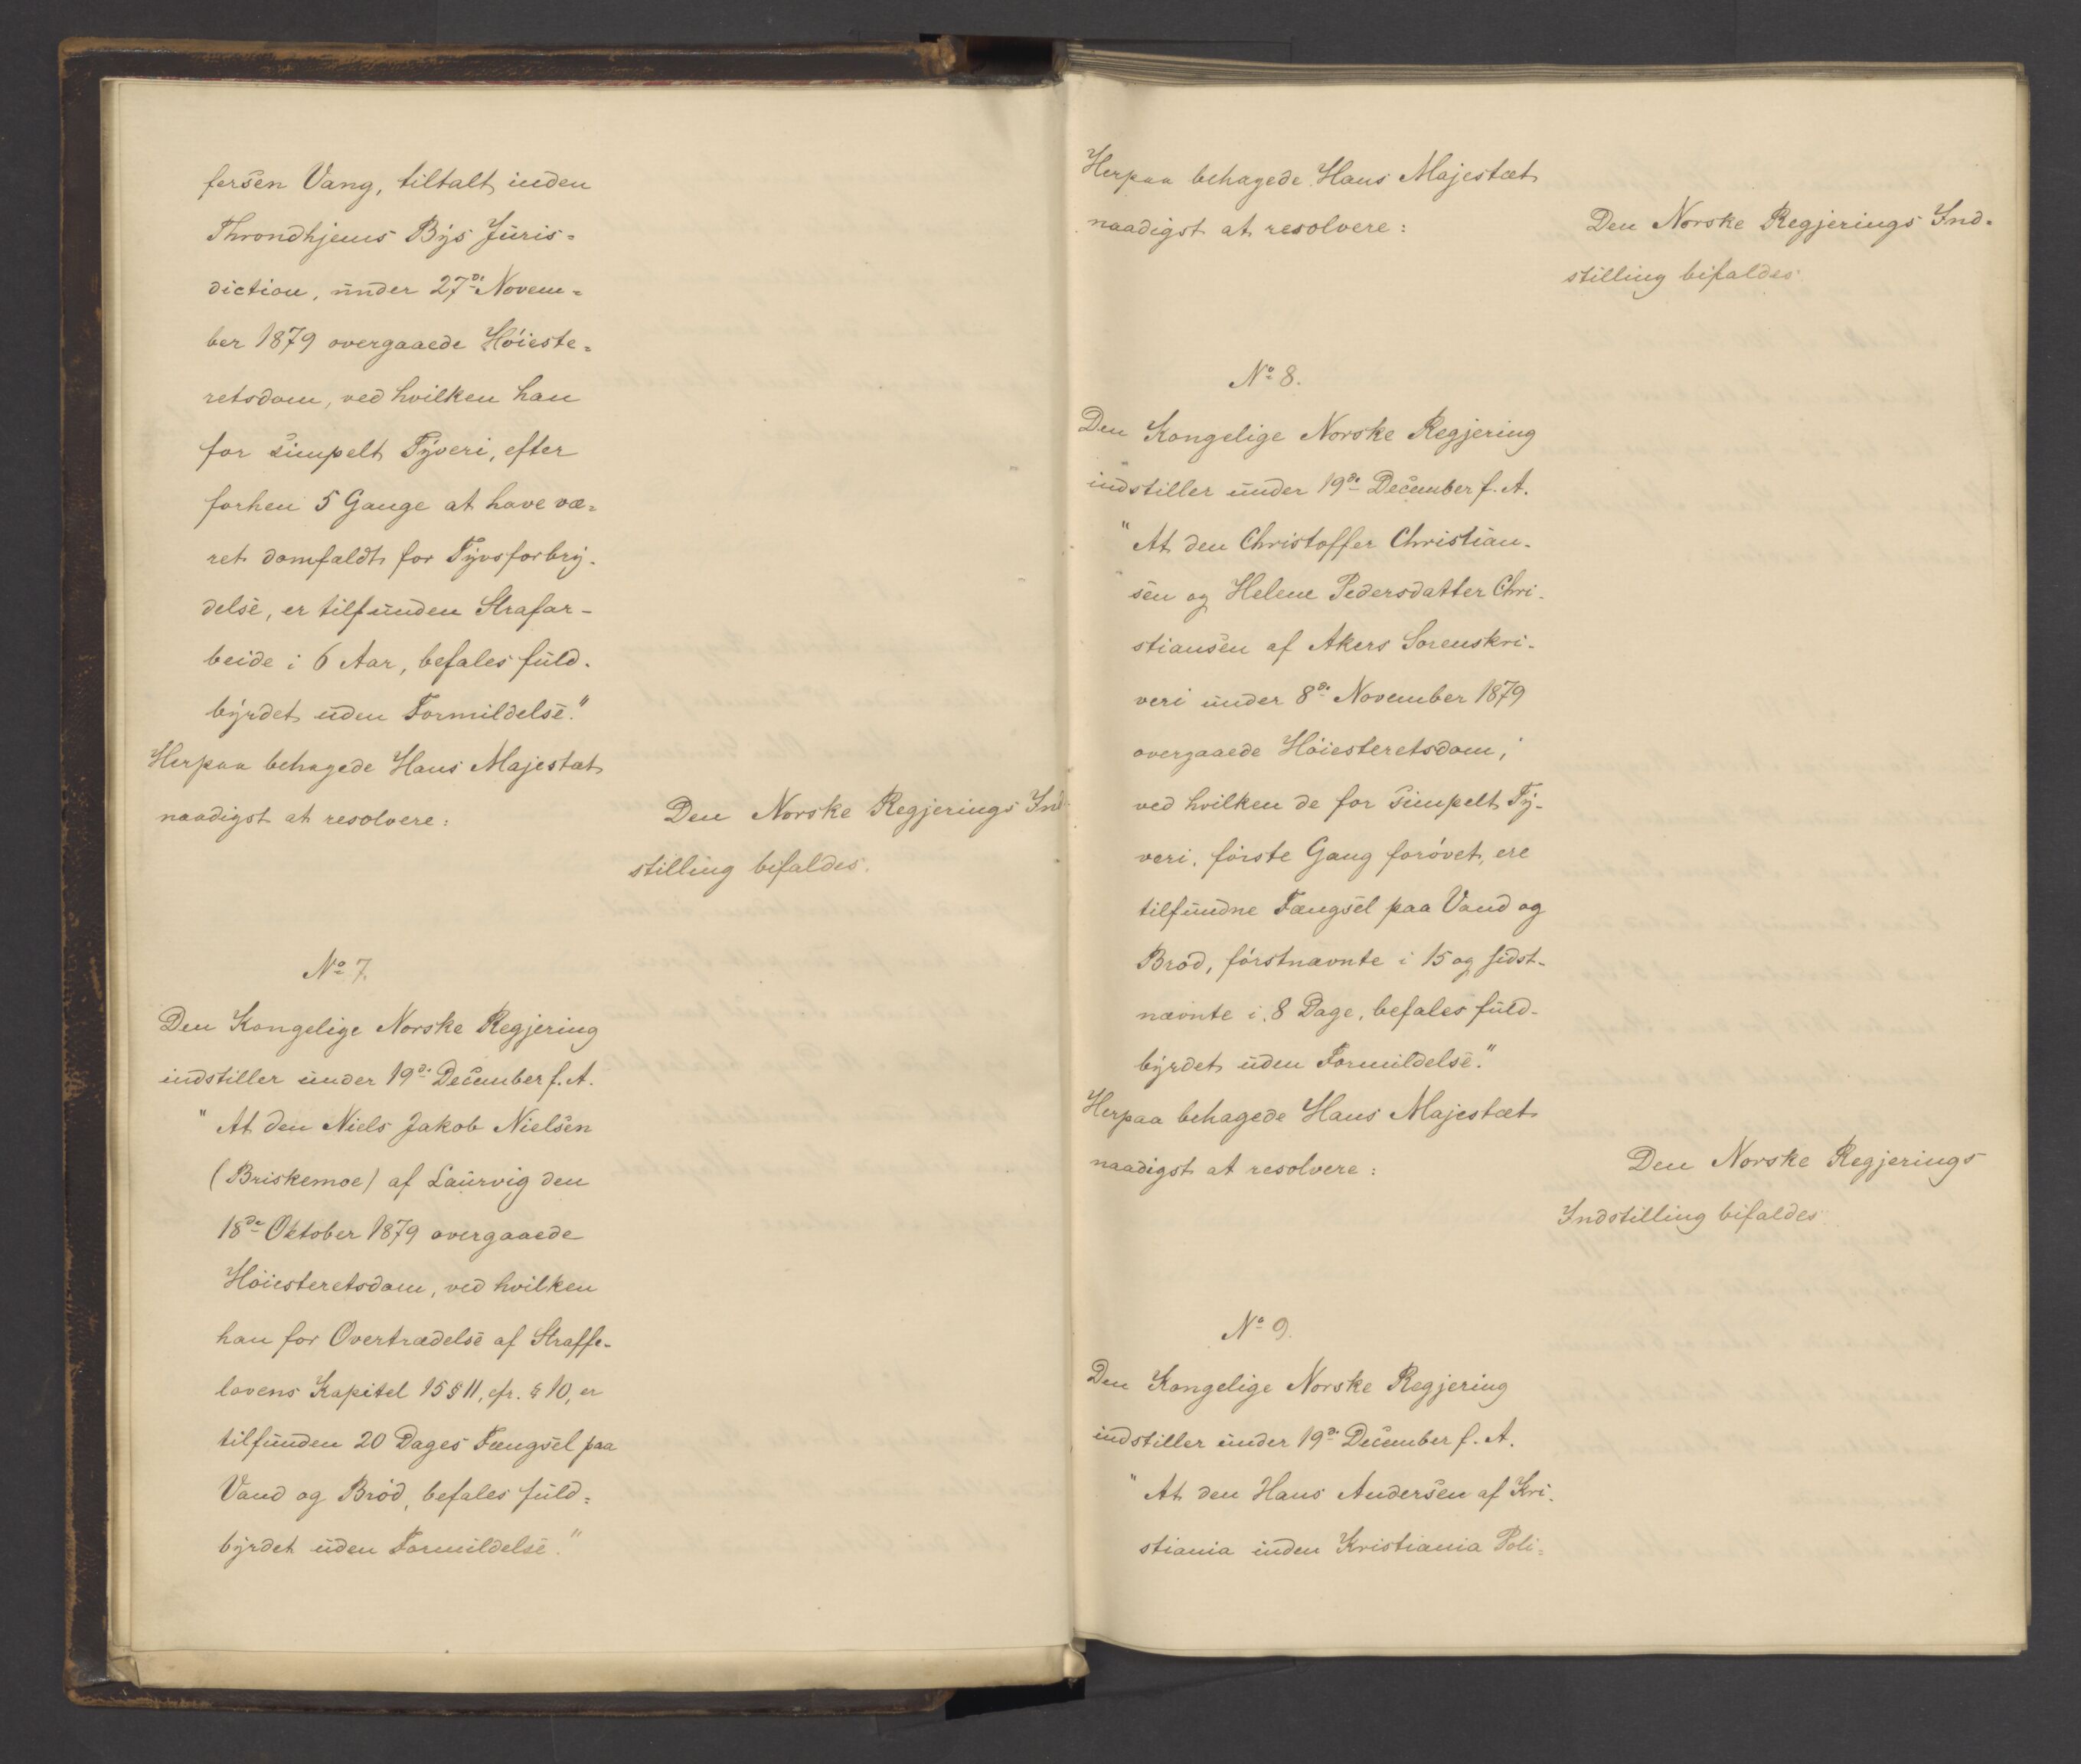 fersen Vang, tiltalt inden
Throndhjems Bys Juris=
diction, under 27de Novem=
ber 1879 overgaaede Høieste=
retsdom, ved hvilken han
for simpelt Tyveri, efter
forhen 5 Gange at have væ=
ret domfaldt for Tyvsforbry-
delse, er tilfunden Strafar-
beide i 6 Aar, befales fuld-
byrdet uden Formildelse."
Herpaa behagede Hans Majestæt
naadigst at resolvere:
Den Norske Regjerings Ind-
stilling bifaldes.
No 7.
Den Kongelige Norske Regjering
indstiller under 19de December f. A.
"At den Niels Jakob Nielsen
(Briskemoe) af Laurvig den
18de Oktober 1879 overgaaede
Høiesteretsdom, ved hvilken
han for Overtrædelse af Straffe-
lovens Kapitel 15 § 11, cfr. § 10, er
tilfunden 20 Dages Fængsel paa
Vand og Brød, befales fuld=
byrdet uden Formildelse."
Herpaa behagede Hans Majestæt
naadigst at resolvere:
Den Norske Regjerings Ind-
stilling bifaldes.
No 8.
Den Kongelige Norske Regjering
indstiller under 19de December f. A.
"At den Christoffer Christian-
sen og Helene Pedersdatter Chri-
stiansen af Akers Sorenskri-
veri under 8de November 1879
overgaaede Høiesteretsdom,
ved hvilken de for simpelt Ty-
veri, første Gang forøvet, ere
tilfundne Fængsel paa Vand og
Brød, førstnævnte i 15 og sidst-
nævnte i 8 Dage, befales fuld-
byrdet uden Formildelse."
Herpaa behagede Hans Majestæt
naadigst at resolvere:
Den Norske Regjerings
Indstilling bifaldes
No 9.
Den Kongelige Norske Regjering
indstiller under 19de December f. A.
"At den Hans Andersen af Kri-
stiania inden Kristiania Poli=